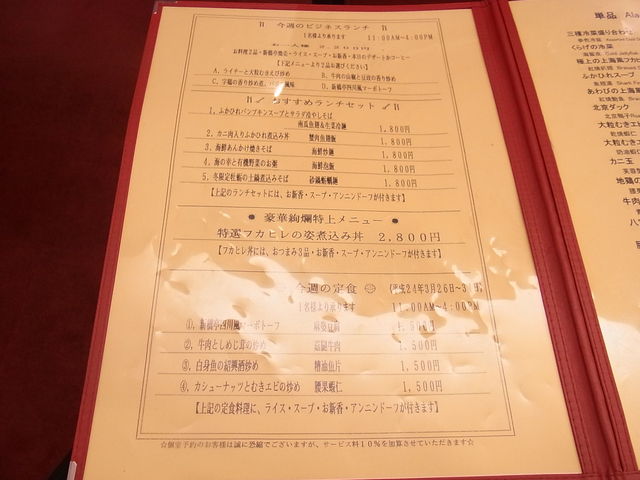 今週のビジネスランチ
1名様より承ります 11:00AM~4:00PM
お一人様 2,200円
お料理2品・新橋亭焼売・ライス・スープ・お新香・本日のデザートかコーヒー
【下記メニューより2品お選びください】
A、ライチーと大粒むきえび炒め B、牛肉の山椒と豆豉の香り炒め
D、新橋亭西川風マーボトーフ
おすすめランチセット
1、ふかひれパンプキンスープとサラダ冷やしそば
南瓜魚翅&生菜冷麺 1,800円
2、カニ肉入りふかひれ煮込み丼 蟹肉魚翅飯 1,800円
3、海鮮あんかけ焼きそば 海鮮炒麺 1,800円
4、海の幸と有機野菜のお粥 海鮮泡飯 1,800円
5、冬限定牡蛎の土鍋煮込みそば 砂鍋蛎蠣麺 1,800円
【上記のランチセットには、お新香・スープ・アンニンドーフが付きます】
● 豪華絢爛特上メニュー ●
特選フカヒレの姿煮込み丼 2,800円
【フカヒレ丼には、おつまみ3品・お新香・スープ・アンニンドーフが付きます】
今週の定食 (平成24年3月26日~
1名様より承ります 11:00AM~4:00PM
①、新橋亭西川風マーボトーフ 麻婆豆腐 1,500円
②、牛肉としめじ茸の炒め 1,500円
③、白身魚の紹興酒炒め 糟油魚片 1,500円
④、カシューナッツとむきエビの炒め 腰果蝦仁 1,500円
【上記の定食料理に、ライス・スープ・お新香・アンニンドーフが付きます】
☆個室予約のお客様は誠に恐縮でございますが、サービス料10%を加算させていただきます☆
単品 Ala
三種冷菜盛り合わせ
くらげの冷菜
極上の上海蟹フカヒ
ふかひれスープ
あわびの上海風
北京ダック
大粒むきエビ
乾焼蝦仁
大粒むきエ
カニ玉
地鶏の
牛肉